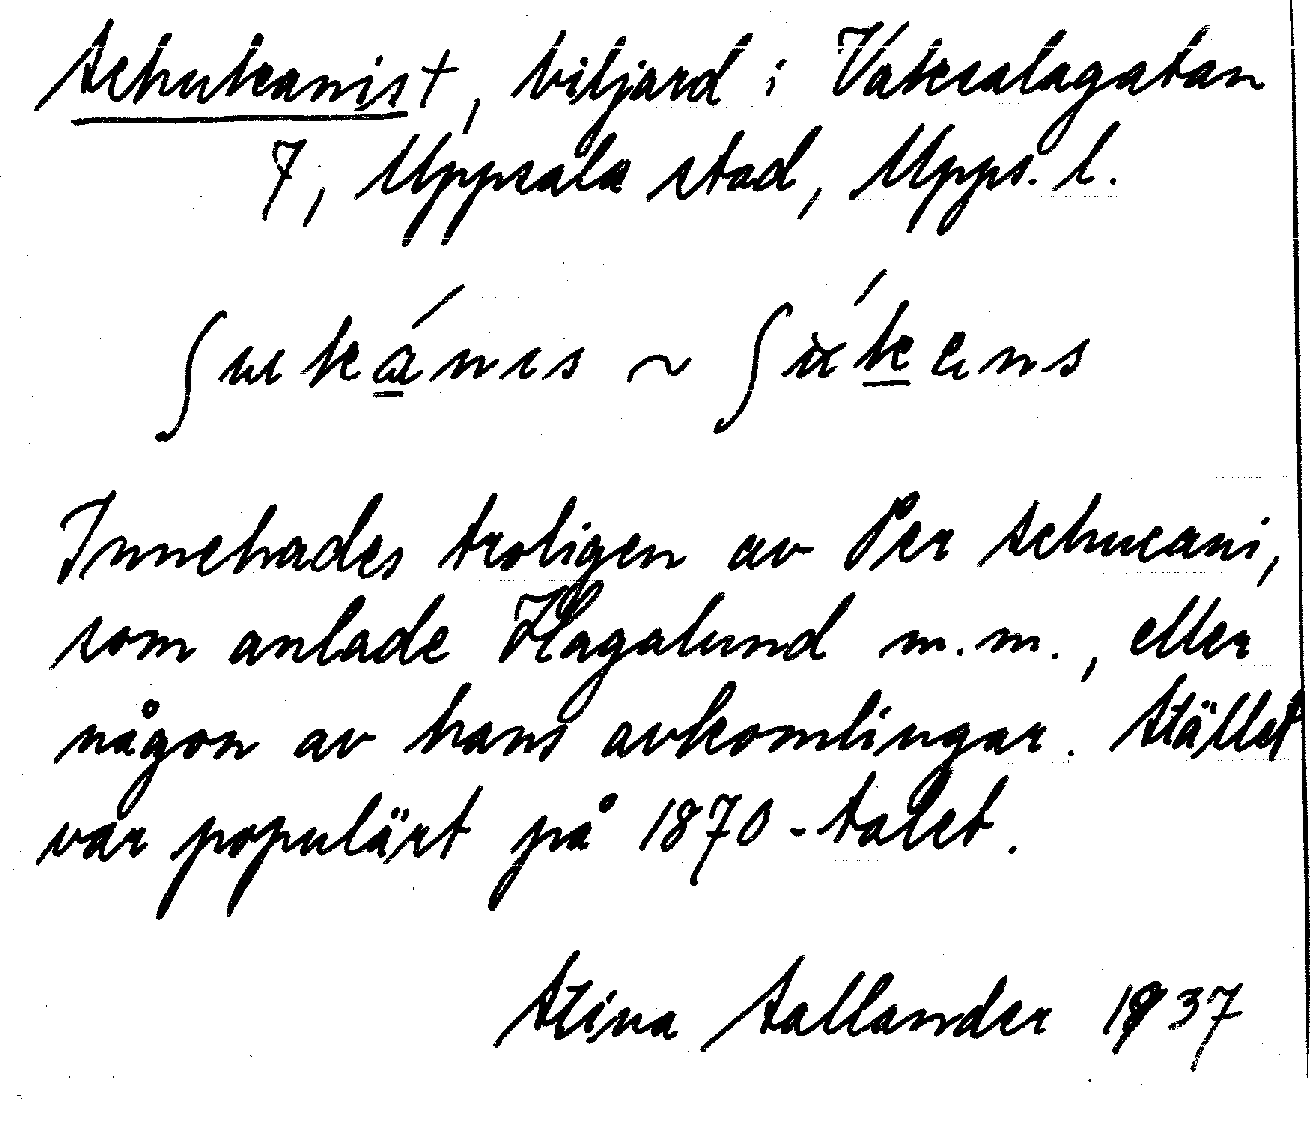 Schukanis†, biljard i Vaksalagatan
7, Uppsala stad, Upps. l.
Innehades troligen av Per Schucani,
som anlade Flagalund m.m., eller
någon av hans avkomlingar. Stället
var populärt på 1870-talet.
Stina Sallander 1937